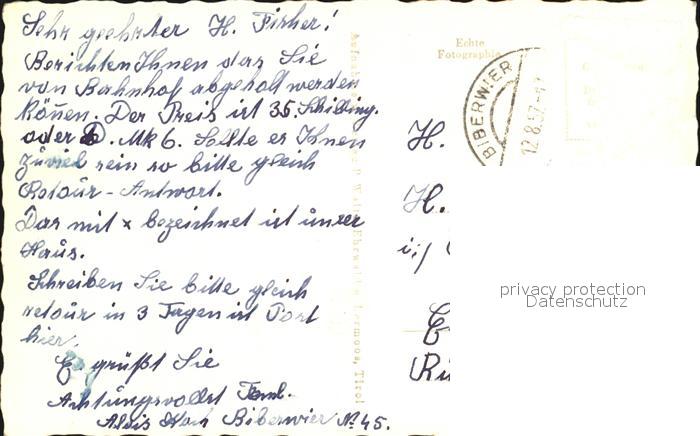 Sehr geehrter H. Fisher!
Berichten Ihnen das Sie
von Bahnhof abgeholt werden
können. Der Preis ist 35. Schilling.
oder D. Mk 6. Sollte es Ihnen
züviel sein so bitte gleich
Retoür - Antwort.
Das mit x bezeichnet ist ünser
Haüs.
Schreiben Sie bitte gleich
retoür in 3 Tagen ist Post
hier.
Es grüßt Sie
Achtüngsvollst Faml.
Alois Koch Biberwier № 45.
Echte
Fotographie
BIBERWIER
12.8.57
H.
H.
i/
privacy protection
Datenschutz
Ehrwald
Lermoos, Tirol